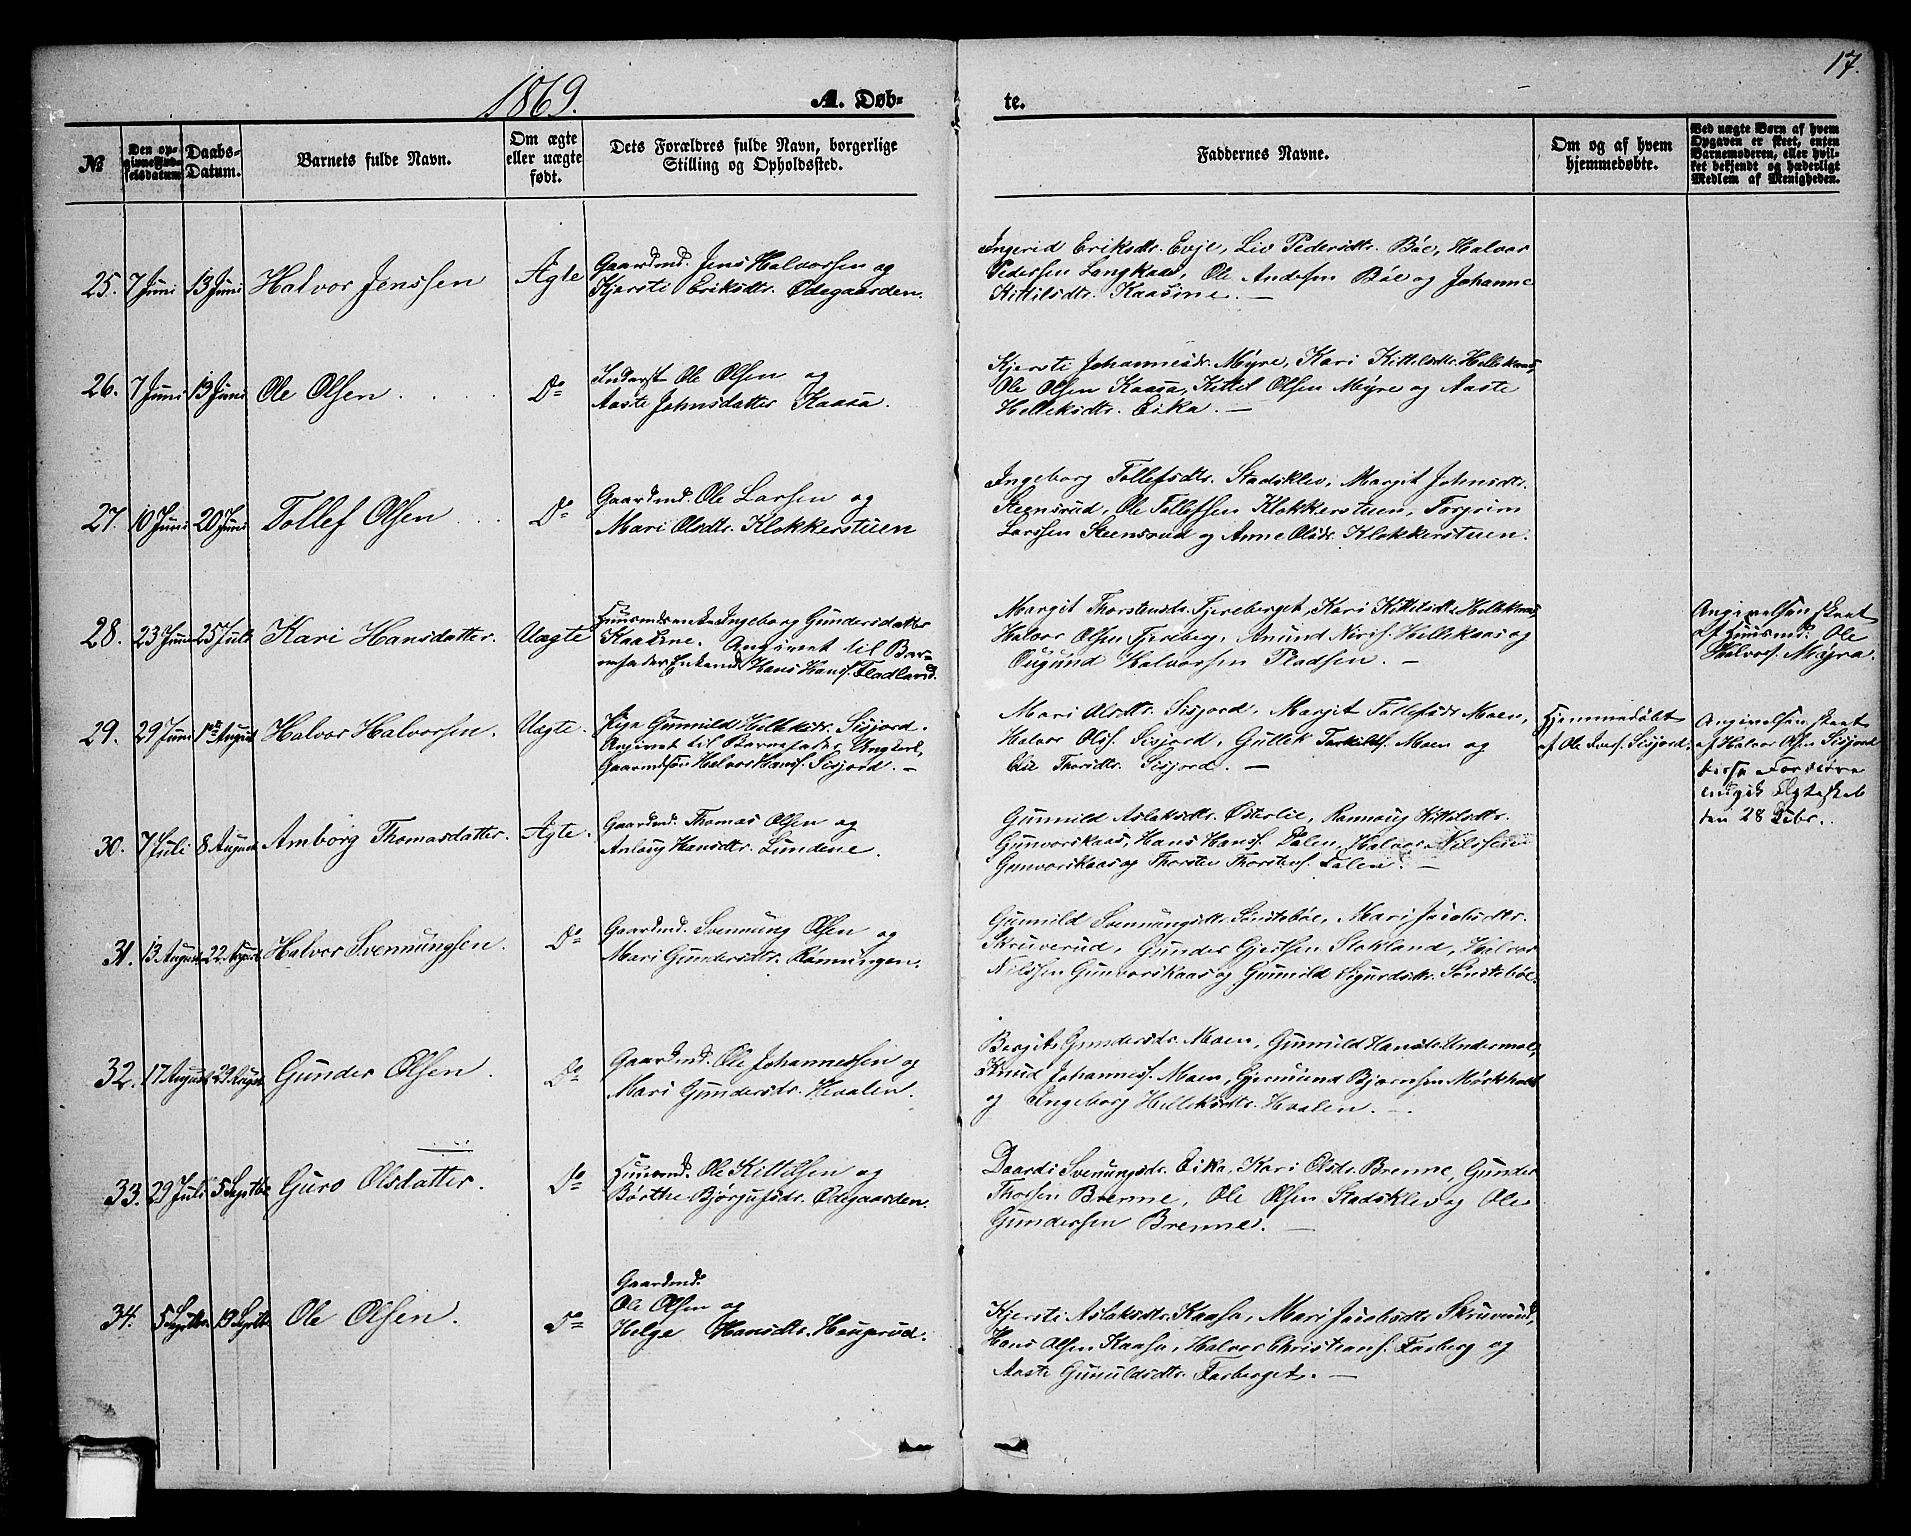 17.
1869.
A. Døb-
te.
№
Den op-
givne Fød-
selsdatum
Daabs-
Datum.
Barnets fulde Navn.
Om ægte
eller uægte
født.
Dets Forældres fulde Navn, borgerlige
Stilling og Opholdssted.
Faddernes Navne.
Om og af hvem
hjemmedøbte.
Ved uægte Børn af hvem
Opgaven er skeet, enten
Barnemoderen, eller hvil-
ket bekjendt og hæderligt
Medlem af Menigheden.
25. 7 Juni 13 Juni Halvor Jenssen Ægte
Gaardmd. Jens Halvorsen og
Kjersti Eriksdtr. Ødegaarden.
Ingerid Eriksdtr. Evje, Liv Pedersdtr. Bøe, Halvor
Pedersen Langkaas, Ole Andersen Bøe og Johanne
Kittilsdtr. Kaasine. —
26. 7 Juni 13 Juni Ole Olsen Do
Inderst Ole Olsen og
Aaste Johnsdatter Kaasa.
Kjersti Johannesdr. Myre, Kari Kittilsdtr. Hellekaas,
Ole Olsen Kaasa, Kittel Olsen Myre og Aaste
Helleksdtr. Eika. —
27. 10 Juni 20 Juni Tollef Olsen Do
Gaardmd. Ole Larsen og
Mari Olsdtr. Klokkerstuen
Ingeborg Tollefsdtr. Stadsklev, Margit Johnsdtr.
Steensrud, Ole Tollefsen Klokkerstuen, Torgrim
Larssen Steensrud og Anne Olsdr. Klokkerstuen.
28. 23 Juni 25 Juli Kari Hansdatter. Uægte
Ingeborg Gundersdatter
Kaasine. Angivet til Bar-
nefader Enkemd. Hans Hans. Fladland.
Margit Thorstensdr. Fjereberget, Kari Kittilsdtr. Hellekaas,
Halvor Olsen Fjereberg, Amund Hellekaas og
Øugund Halvorsen Pladsen. —
Angivelsen skeet
af Huusmd. Ole
Halvors. Myra.
29. 29 Juni 1ste August Halvor Halvorsen. Uægte
Pige Gunnild Helleksdr. Sisjord.
Angivet til Barnefader Ungkarl,
Gaardmdsøn Halvor Hans. Sisjord. —
Mari Olsdtr. Sisjord, Margit Tollefsdr. Moen,
Halvor Ols. Sisjord, Gullek Tarkilds. Moen og
Thorsdtr. Sisjord. —
Hjemmedøbt
af Ole Ivers. Sisjord.
Angivelsen skeet
af Halvor Olsen Sisjord
disse Forældre
indgik Ægteskab
den 28 Debr.
30. 7 Juli 8 August Amborg Thomasdatter. Ægte.
Gaardmd. Thomas Olsen og
Anlaug Hansdtr. Lundene.
Gunnild Aslaksdtr. Østerlie, Rannoug Kittilsdtr.
Gunvorskaas, Hans Hans. Dalen, Halvor Nilssen
Gunvorskaas og Thorsten Thorstens. Dalen. —
31. 13 August 22 August Halvor Svennungsen. Do
Gaardmd. Svennung Olsen og
Mari Gundersdtr. Rønningen.
Gunnild Svennungsdtr. Sønstebøe, Mari Jacobsdtr.
Skruverud, Gunder Gjertsen Stokland, Halvor
Nilssen Gunvorskaas og Gunnild Sigurdsdtr. Sønstebøe.
32. 17 August 29 August Gunder Olsen. Do
Gaardmd. Ole Johannessen og
Mari Gundersdr. Hvalen.
Bergit Gundersdr. Moen, Gunnild Hansdtr.
Knud Johanness. Moen, Gjermund Bjørnsen Mørkhold
og Ingeborg Helleksdtr. Hvalen. —
33. 29 Juli 5 Septbr Guro Olsdatter. Do
Huusmd. Ole Kittilsen og
Børthe Bjørgufsdr. Ødegaarden.
Daardi Svenungsdr. Eika, Kari Olsdr. Brenne, Gunder
Thorsen Brenne, Ole Olsen Stadsklev og Ole
Gundersen Brenne. —
34. 5 Septbr. 19 Septbr Ole Olsen. Do
Gaardmd.
Ole Olsen og
Helge Hansdtr. Haugerud.
Kjersti Aslaksdtr. Kaasa, Mari Jacobsdtr. Skruverud,
Hans Olsen Kaasa, Halvor Christians. Farberg og
Aaste Gunnuldsdtr. Farberget. —